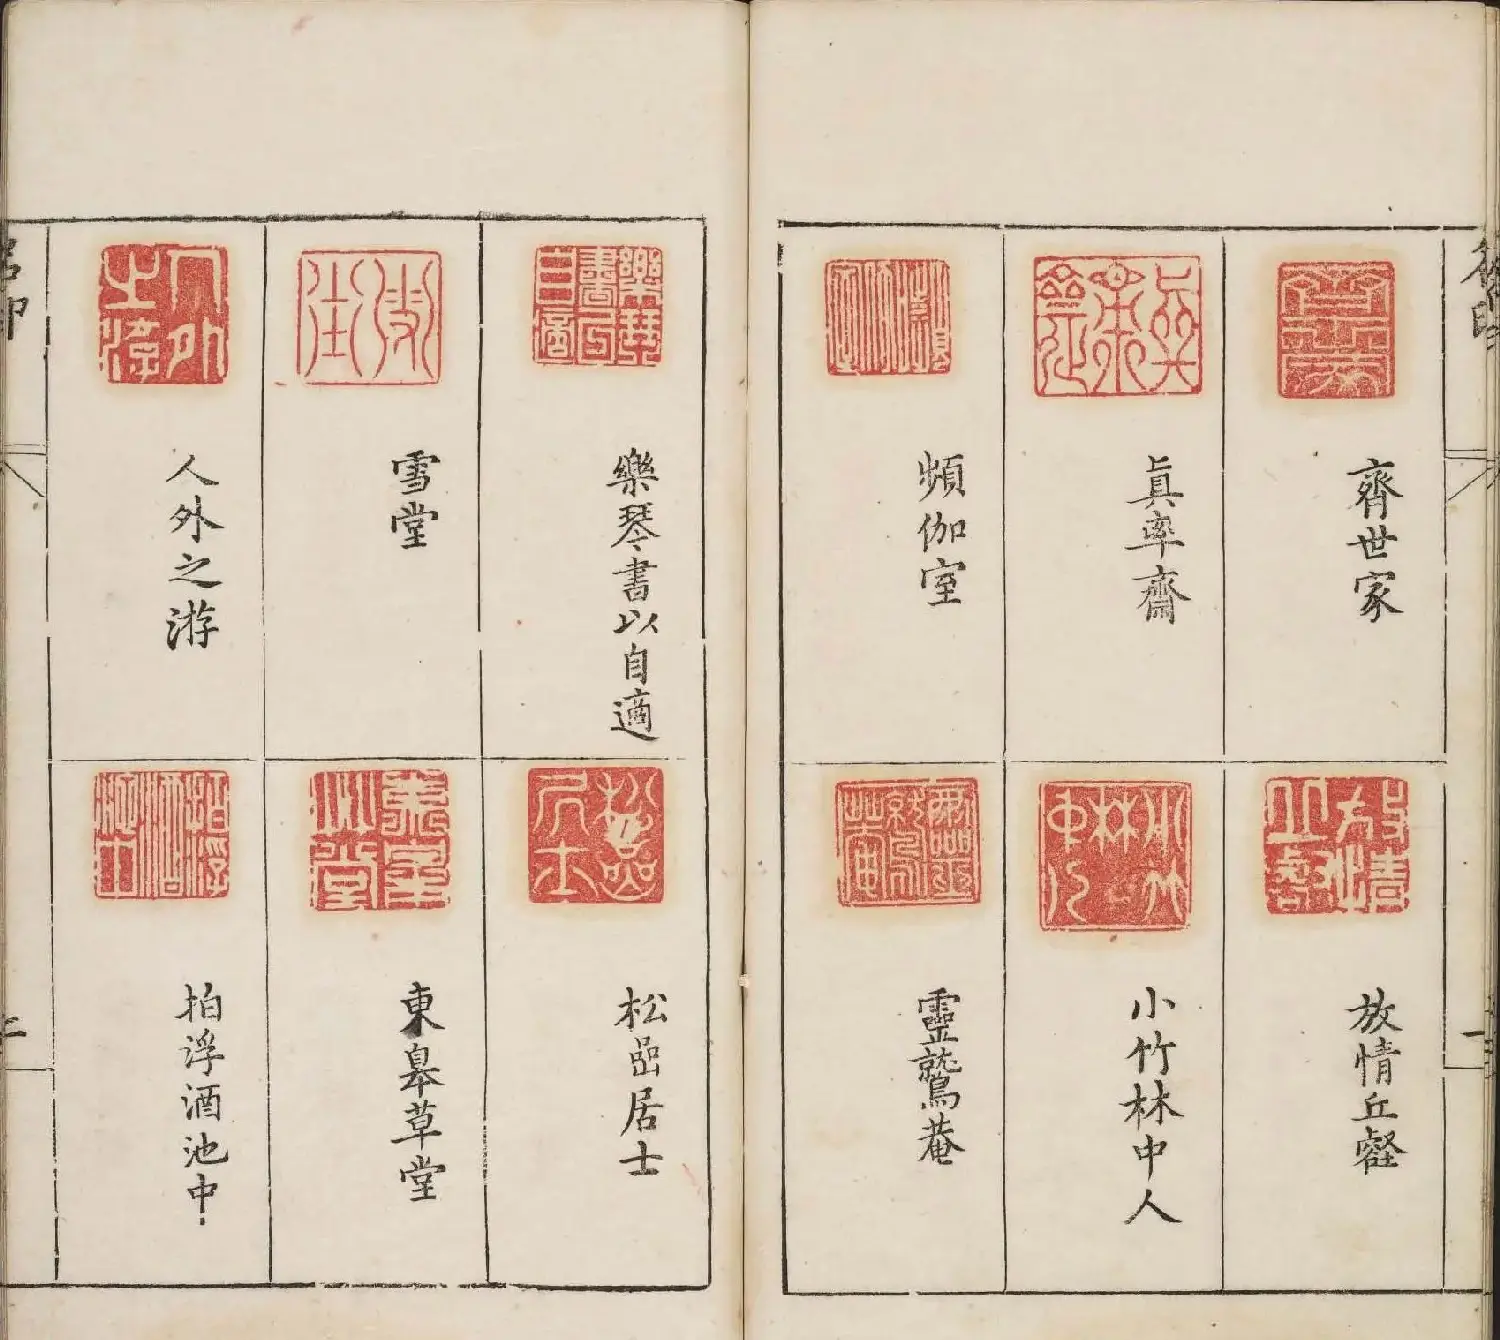 齊世家
放情丘壑
眞率齋
小竹林中人
頻伽室
靈鷲菴
樂琴書以自適
松嵒居士
雪堂
東皋草堂
人外之游
拍浮酒池中